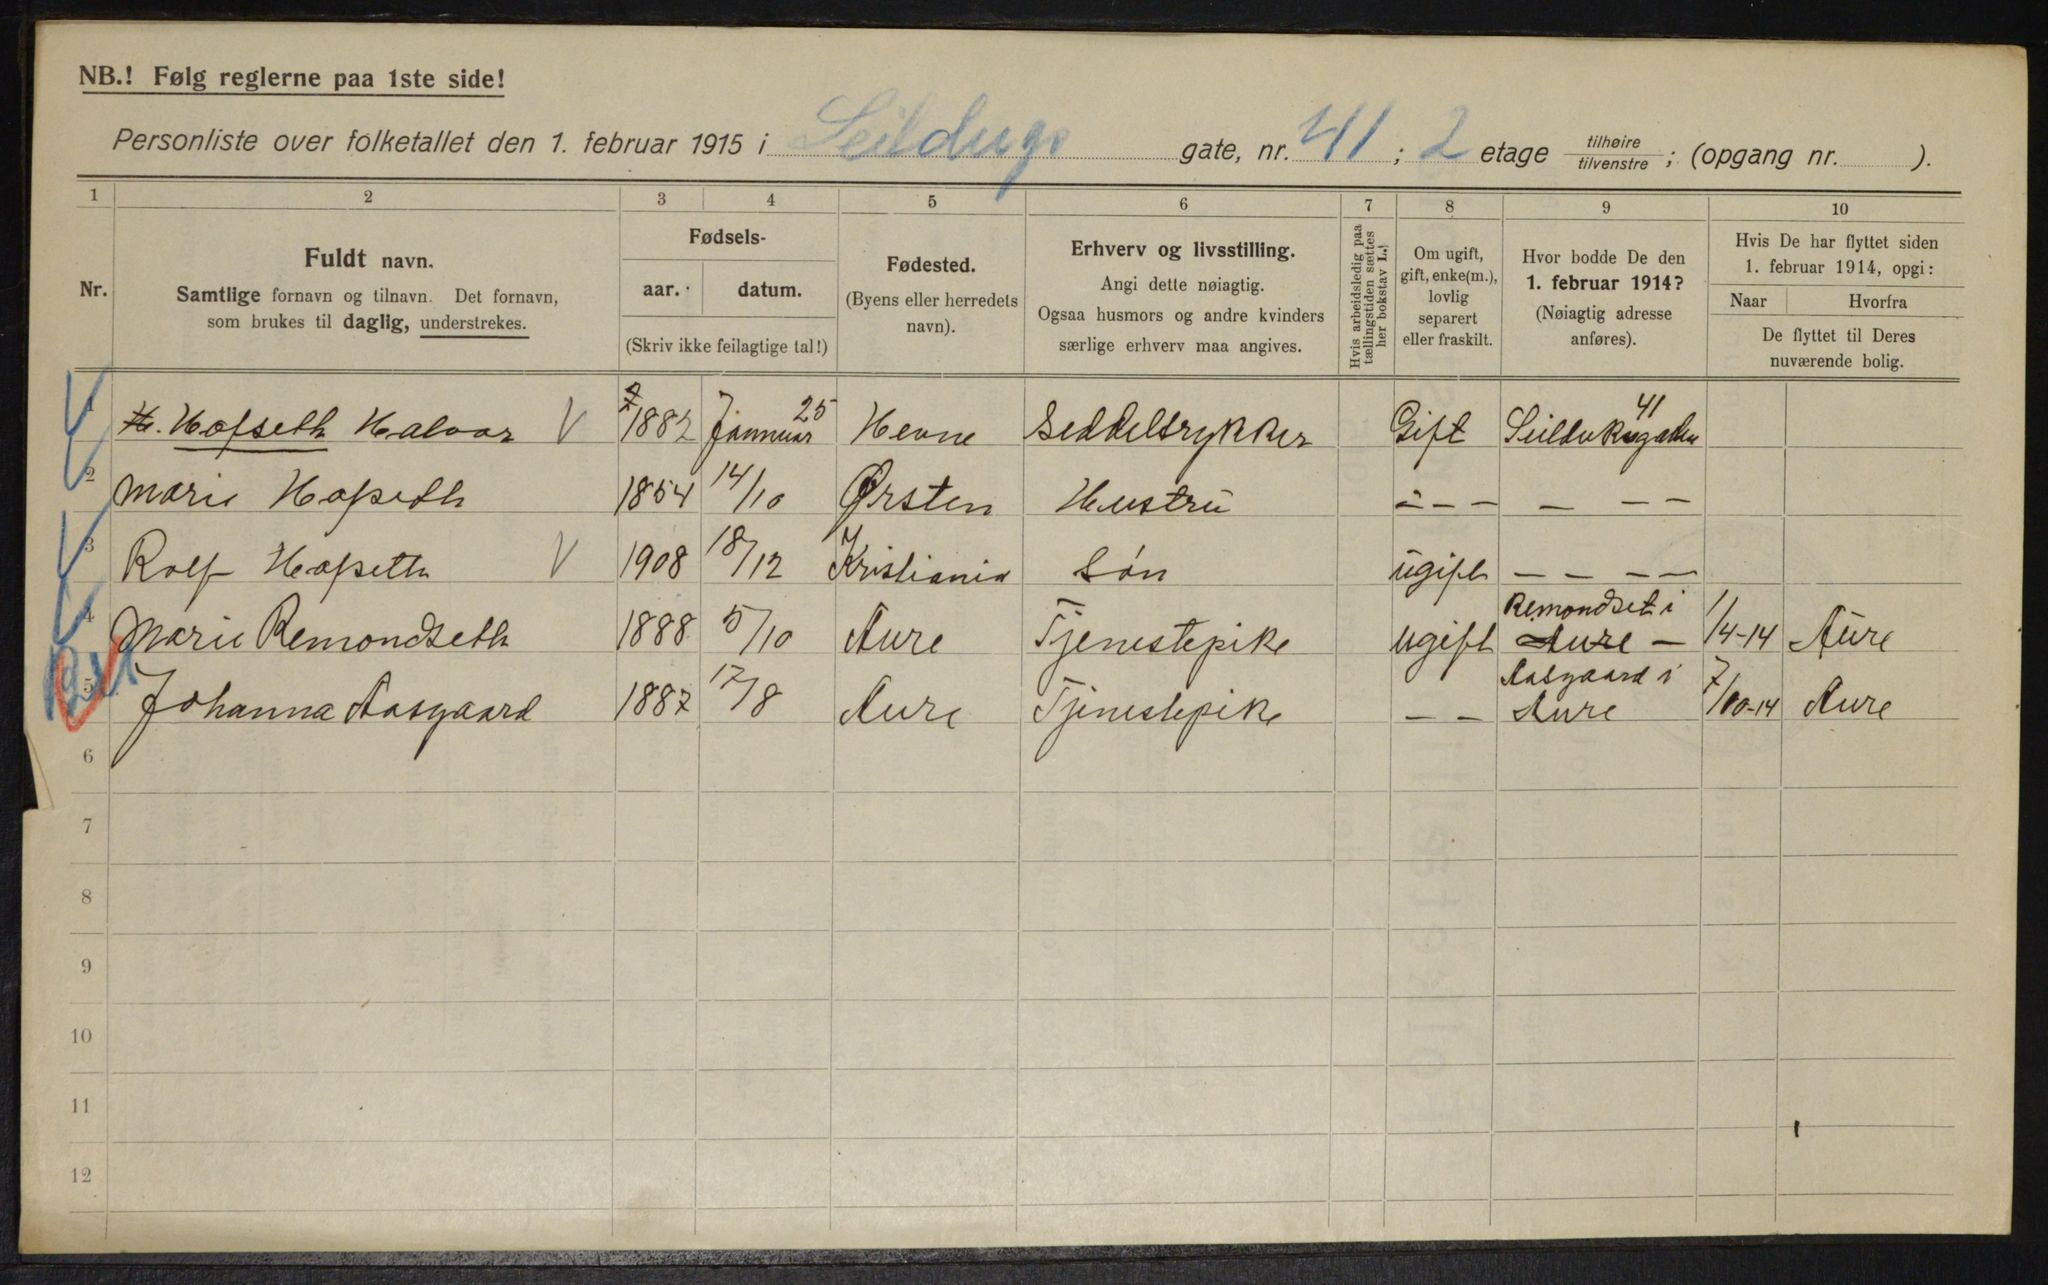 NB.! Følg reglerne paa 1ste side!
Personliste over folketallet den 1. februar 1915 i Seildugs gate, nr. 41; 2 etage tilhøire tilvenstre; (opgang nr. ).
1 2 3 4 5 6 7 8 9 10
Nr.
Fuldt navn.
Samtlige fornavn og tilnavn. Det fornavn,
som brukes til daglig, understrekes.
Fødsels-
aar. datum.
(Skriv ikke feilagtige tal!)
Fødested.
(Byens eller herredets
navn).
Erhverv og livsstilling.
Angi dette nøiagtig.
Ogsaa husmors og andre kvinders
særlige erhverv maa angives.
Hvis arbeidsledig paa
tællingstiden sættes
her bokstav L.!
Om ugift,
gift, enke(m.),
lovlig
separert
eller fraskilt.
Hvor bodde De den
1. februar 1914?
(Nøiagtig adresse
anføres).
Hvis De har flyttet siden
1. februar 1914, opgi:
Naar Hvorfra
De flyttet til Deres
nuværende bolig.
1 H. Hofseth Halvor V 1882 Januar 25 Hevne Seddeltrykker Gift Seilduksgaden 41
2 Marie Hofseth 1854 14/10 Ørsten Hustru - - - - - -
3 Rolf Hofseth V 1908 18/12 Kristiania Søn ugift - - - -
4 Marie Remondseth 1888 5/10 Aure Tjenestepike ugift Remondset i Aure - 1/4-14 Aure
5 Johanna Aasgaard 1887 17/8 Aure Tjenestepike - - Aasgaard i Aure 7/10-14 Aure
6
7
8
9
10
11
12